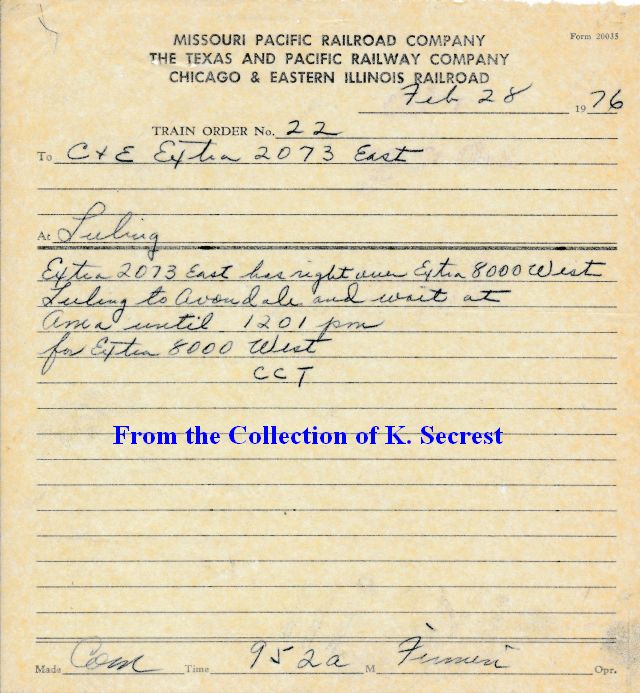 Form 20035
MISSOURI PACIFIC RAILROAD COMPANY
THE TEXAS AND PACIFIC RAILWAY COMPANY
CHICAGO & EASTERN ILLINOIS RAILROAD
Feb 28 1976
TRAIN ORDER No. 22
To C+E Extra 2073 East
At Luling
Extra 2073 East has right over Extra 8000 West
Luling to Avondale and wait at
Ama until 1201 pm
for Extra 8000 West
CCT
From the Collection of K. Secrest
Made Com Time 952a M Opr.